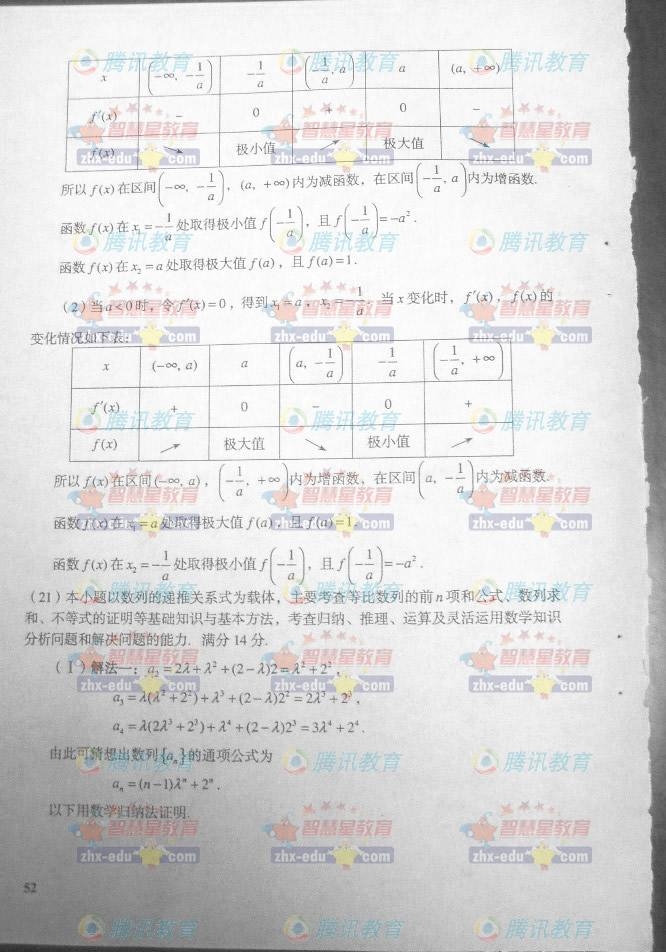 x (-∞, -1/a) -1/a (-1/a, a) a (a, +∞)
f′(x) - 0 + 0 -
f(x) ↘ 极小值 ↗ 极大值 ↘
所以 f(x) 在区间(-∞, -1/a), (a, +∞)内为减函数, 在区间(-1/a, a)内为增函数.
函数 f(x) 在 x₁=-1/a 处取得极小值 f(-1/a), 且 f(-1/a)=-a².
函数 f(x) 在 x₂=a 处取得极大值 f(a), 且 f(a)=1.
(2)当 a<0 时, 令 f′(x)=0, 得到 x₁=a, x₂=-1/a. 当 x 变化时, f′(x), f(x) 的
变化情况如下表:
x (-∞, a) a (a, -1/a) -1/a (-1/a, +∞)
f′(x) + 0 - 0 +
f(x) ↗ 极大值 ↘ 极小值 ↗
所以 f(x) 在区间(-∞, a), (-1/a, +∞)内为增函数, 在区间(a, -1/a)内为减函数.
函数 f(x) 在 x₁=a 处取得极大值 f(a), 且 f(a)=1.
函数 f(x) 在 x₂=-1/a 处取得极小值 f(-1/a), 且 f(-1/a)=-a².
(21)本小题以数列的递推关系式为载体, 主要考查等比数列的前 n 项和公式、数列求
和、不等式的证明等基础知识与基本方法, 考查归纳、推理、运算及灵活运用数学知识
分析问题和解决问题的能力. 满分 14 分.
(Ⅰ)解法一: a₂=2λ+λ²+(2-λ)2=λ²+2²,
a₃=λ(λ²+2²)+λ³+(2-λ)2²=2λ³+2³,
a₄=λ(2λ³+2³)+λ⁴+(2-λ)2³=3λ⁴+2⁴.
由此可猜想出数列{aₙ}的通项公式为
aₙ=(n-1)λⁿ+2ⁿ.
以下用数学归纳法证明.
52
腾讯教育
智慧星教育
zhx-edu com